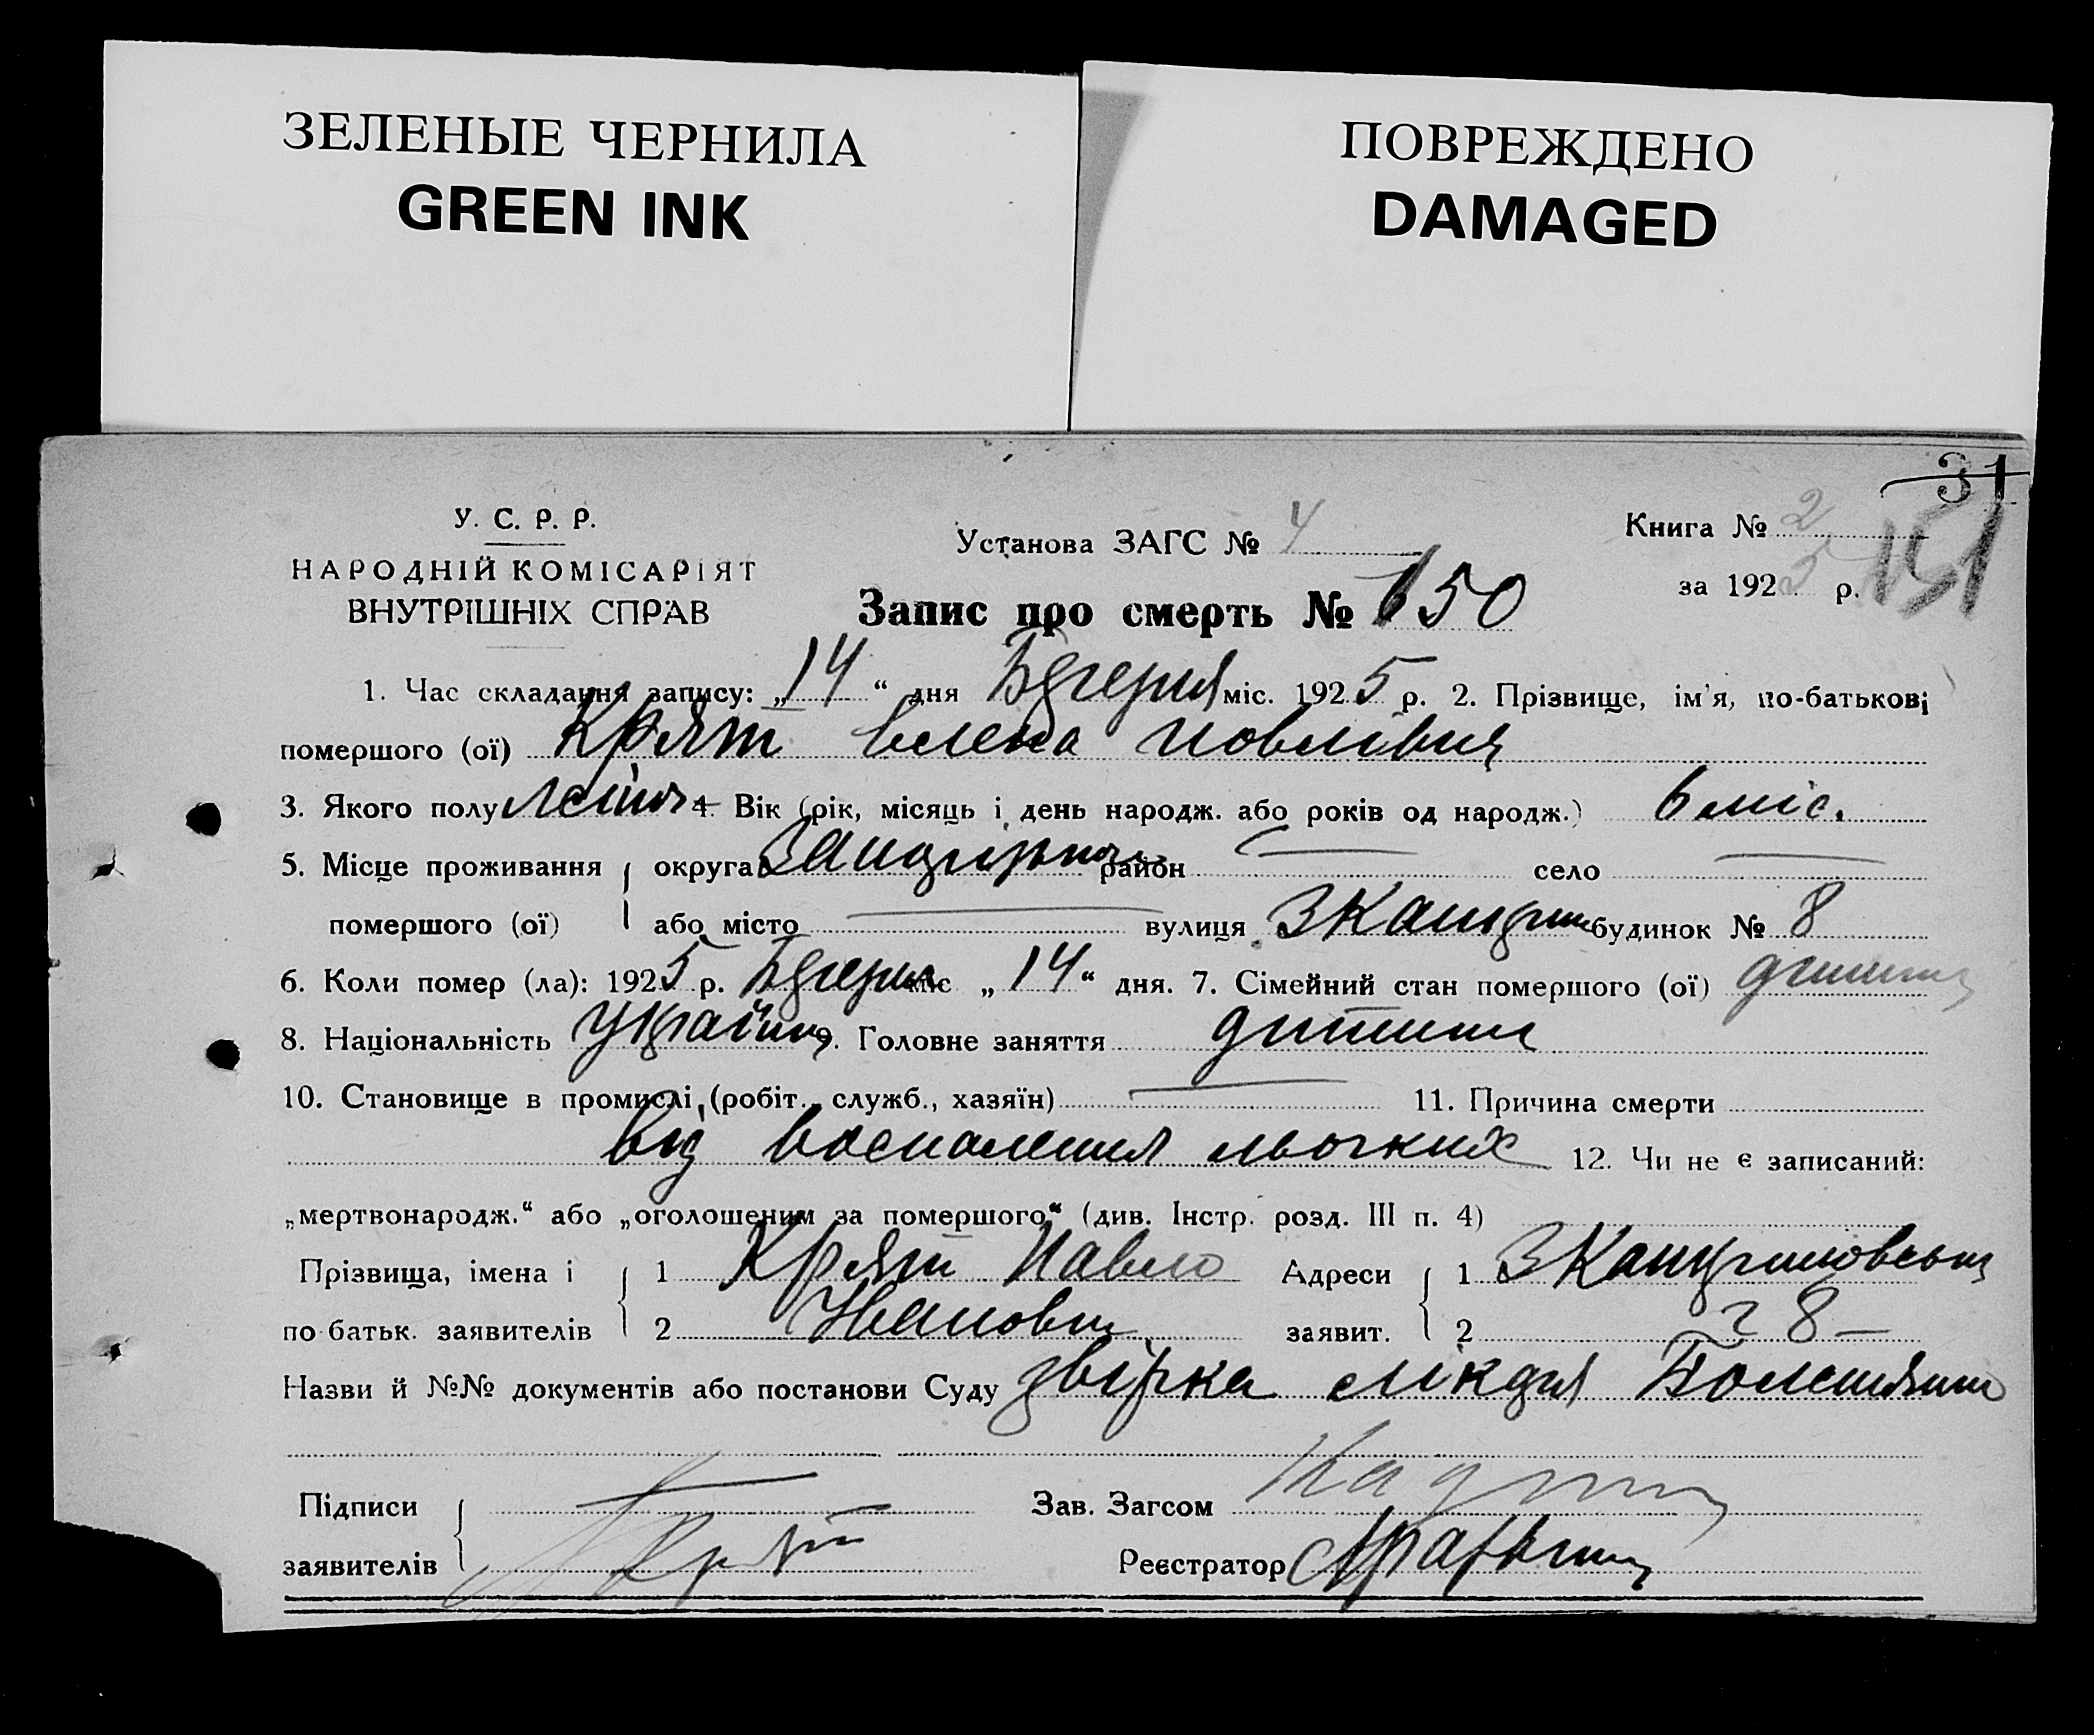 ЗЕЛЕНЫЕ ЧЕРНИЛА
GREEN INK
ПОВРЕЖДЕНО
DAMAGED
31
151
У. С. Р. Р.
НАРОДНІЙ КОМІСАРІЯТ
ВНУТРІШНІХ СПРАВ
Установа ЗАГС № 4
Книга № 2
за 1925 р.
Запис про смерть № 150
1. Час складання запису: „14“ дня міс. 1925 р. 2. Прізвище, ім'я, по-батькові
помершого (ої) Крят Елена Повлівна
3. Якого полу 4. Вік (рік, місяць і день народж. або років од народж.) 6 міс.
5. Місце проживання округа район — село —
помершого (ої) або місто — вулиця будинок № 8
6. Коли помер (ла): 1925 р. міс „14“ дня. 7. Сімейний стан помершого (ої) дитина
8. Національність Україн. 9. Головне заняття дитина
10. Становище в промислі (робіт., служб., хазяїн) — 11. Причина смерти
Від воспаления льогких 12. Чи не є записаний:
„мертвонародж.“ або „оголошеним за помершого“ (див. Інстр. розд. III п. 4)
Прізвища, імена і 1 Крят Павло Адреси 1
по-батьк. заявителів 2 Иванович заявит. 2 8 —
Назви й №№ документів або постанови Суду
Підписи Зав. Загсом
заявителів Крят Реєстратор